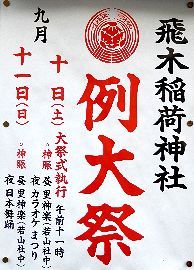 飛木稲荷神社
例大祭
九月
十日(土)
大祭式執行 午前十一時
○神賑 昼 里神楽(若山社中)
夜 カラオケまつり
十一日(日)
○神賑 昼 里神楽(若山社中)
夜 日本舞踊